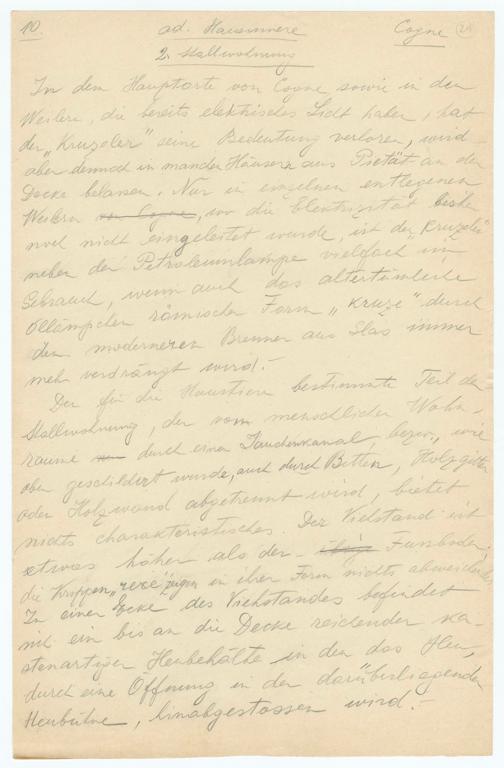 10. ad. Hausinnere Cogne 24
2. Stallwohnung
In dem Hauptorte von Cogne sowie in den
Weilern, die bereits elektrisches Licht haben, hat
der „Kruzeler" seine Bedeutung verloren, wird
aber dennoch in manchen Häusern aus Pietät an der
Decke belassen. Nur in einzelnen entlegenen
Weilern von Cogne, wo die Elektrizität bisher
noch nicht eingeleitet wurde, ist der „Kruzeler"
neben der Petroleumlampe vielfach im
Gebrauch, wenn auch das altertümliche
Öllämpchen römischer Form „Kruze" durch
den moderneren Brenner aus Glas immer
mehr verdrängt wird.-
Der für die Haustiere bestimmte Teil der
Stallwohnung, der vom menschlichen Wohn-
raume durch einen Jauchenkanal, bezw., wie
oben geschildert wurde, auch durch Betten, Holzgitter
oder Holzwand abgetrennt wird, bietet
nichts charakteristisches. Der Viehstand ist
etwas höher als der übrige Fussboden;
die Krippen, zeigen in ihrer Form nichts abweichendes.
In einer Ecke des Viehstandes befindet
sich ein bis an die Decke reichender ka-
stenartiger Heubehälter in den das Heu,
durch eine Öffnung in der darüberliegenden
Heubühne, hinabgestossen wird.-